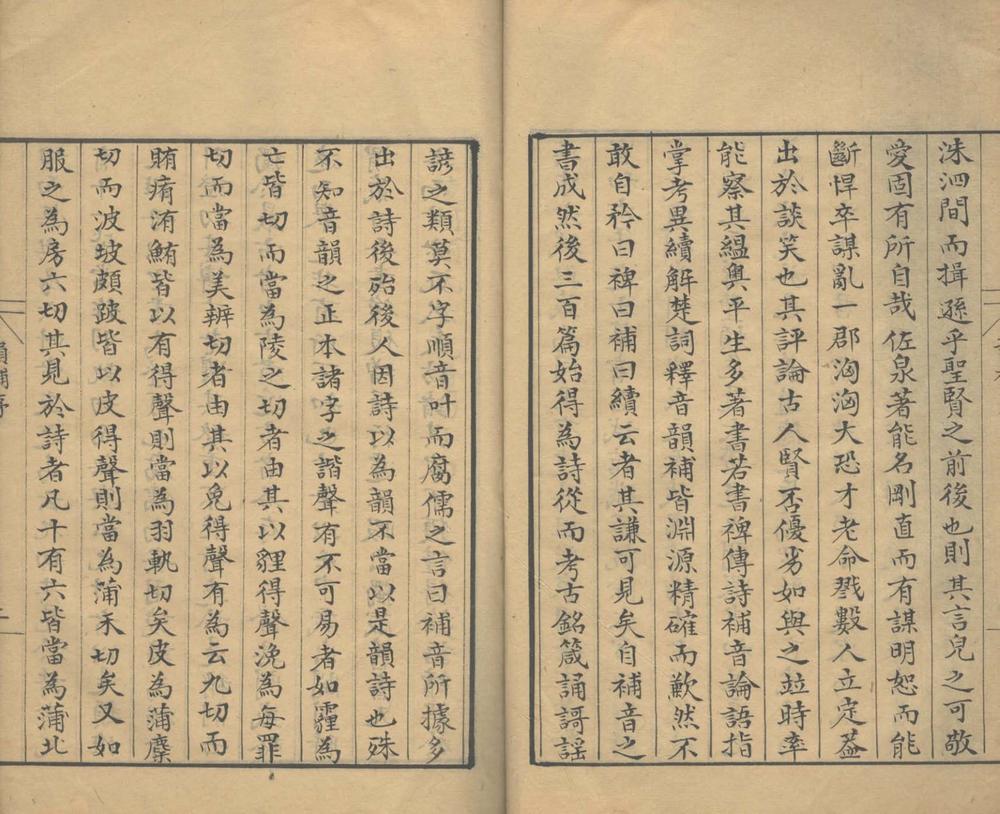 洙泗間而揖遜乎聖賢之前後也則其言皃之可敬
愛固有所自哉佐泉著能名剛直而有謀明恕而能
斷悍卒謀亂一郡洶洶大恐才老命戮數人立定葢
出於談笑也其評論古人賢否優劣如與之竝時率
能察其緼與平生多著書若書裨傳詩補音論語指
掌考異續解楚詞釋音韻補皆淵源精確而歉然不
敢自矜曰裨曰補曰續云者其謙可見矣自補音之
書成然後三百篇始得為詩從而考古銘箴誦謌謠
諺之類莫不字順音叶而腐儒之言曰補音所據多
出於詩後殆後人因詩以為韻不當以是韻詩也殊
不知音韻之正本諸字之諧聲有不可易者如霾為
亡皆切而當為陵之切者由其以貍得聲浼為每罪
切而當為美辨切者由其以免得聲有為云九切而
賄痏洧鮪皆以有得聲則當為羽軌切矣皮為蒲麋
切而波坡頗跛皆以皮得聲則當為蒲禾切矣又如
服之為房六切其見於詩者凡十有六皆當為蒲北
韻補序